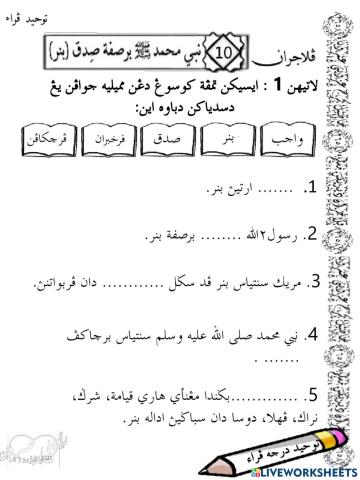 توحيد ڤراء
ڤلاجران 10 نبي محمد ﷺ برصفة صِدق (بنر)
لاتيهن 1 : ايسيكن تمڤة كوسوڠ دڠن مميليه جواڤن يڠ
دسدياكن دباوه اين:
واجب بنر صدق فرخبران ڤرچكاڤن
1. ....... ارتيڽ بنر.
2. رسول٢الله ........ برصفة بنر.
3. مريك سنتياس بنر ڤد سݢل ............ دان ڤربواتنڽ.
4. نبي محمد صلى الله عليه وسلم سنتياس برچاكڤ
....... .
5. .............بݢيندا مڠنأي هاري قيامة، شرݢ،
نراك، ڤهلا، دوسا دان سباݢيڽ اداله بنر.
توحيد درجه ڤراء
LIVEWORKSHEETS